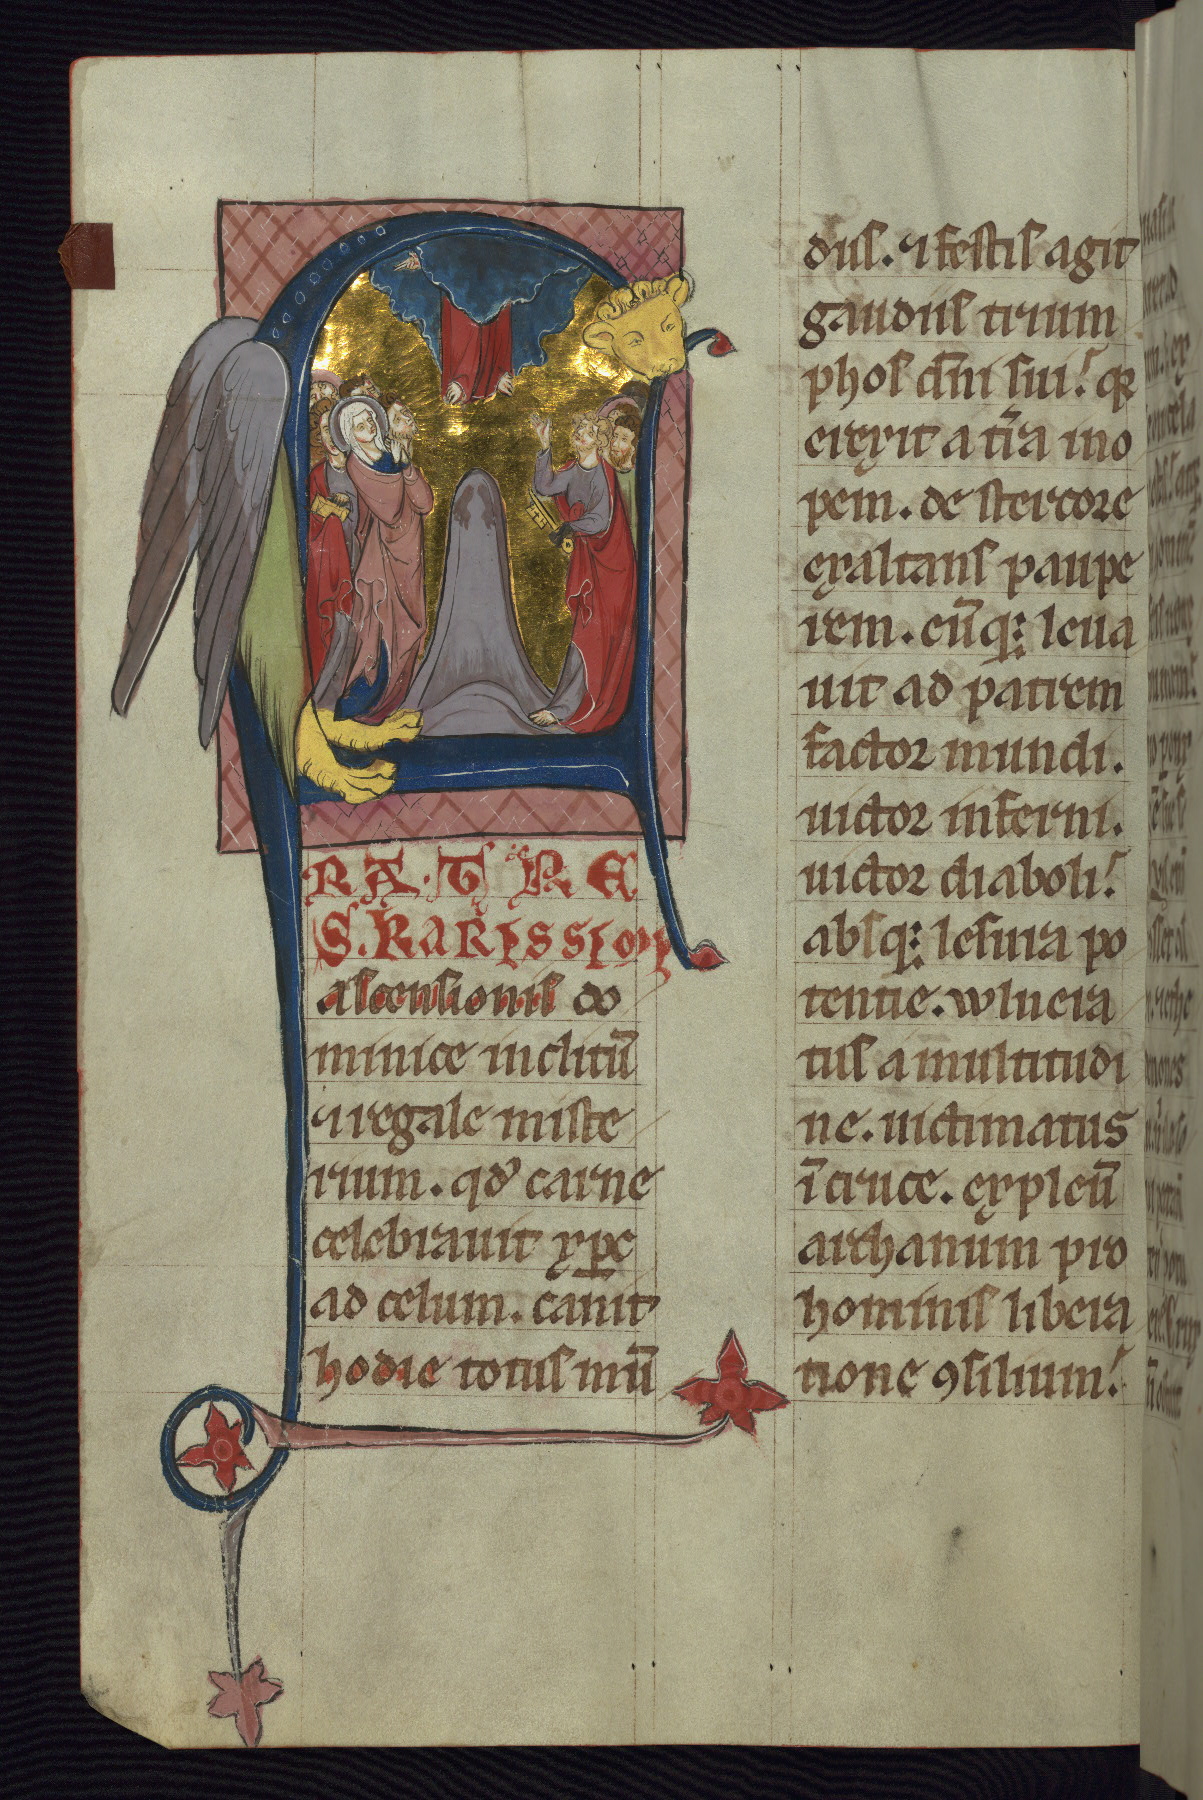 RATRE
S. KARISSIMI
ascensionis do
minice inclitū
⁊ regale miste
rium. qd̕ carne
celebrauit xp̄c
ad celum. canit
hodie totus mū
dus. ⁊ festis agit
gaudiis trium
phos dn̄i sui! q̄
erexit a tr̄a ino
pem. de stercore
exaltans paupe
rem. eūq; leua
uit ad patrem
factor mundi.
uictor inferni.
uictor diaboli!
absq; lesura po
tentie. wlnera
tus a multitudi
ne. uictimatus
ī cruce. expleuit
archanum pro
hominis libera
tione ꝯsilium!